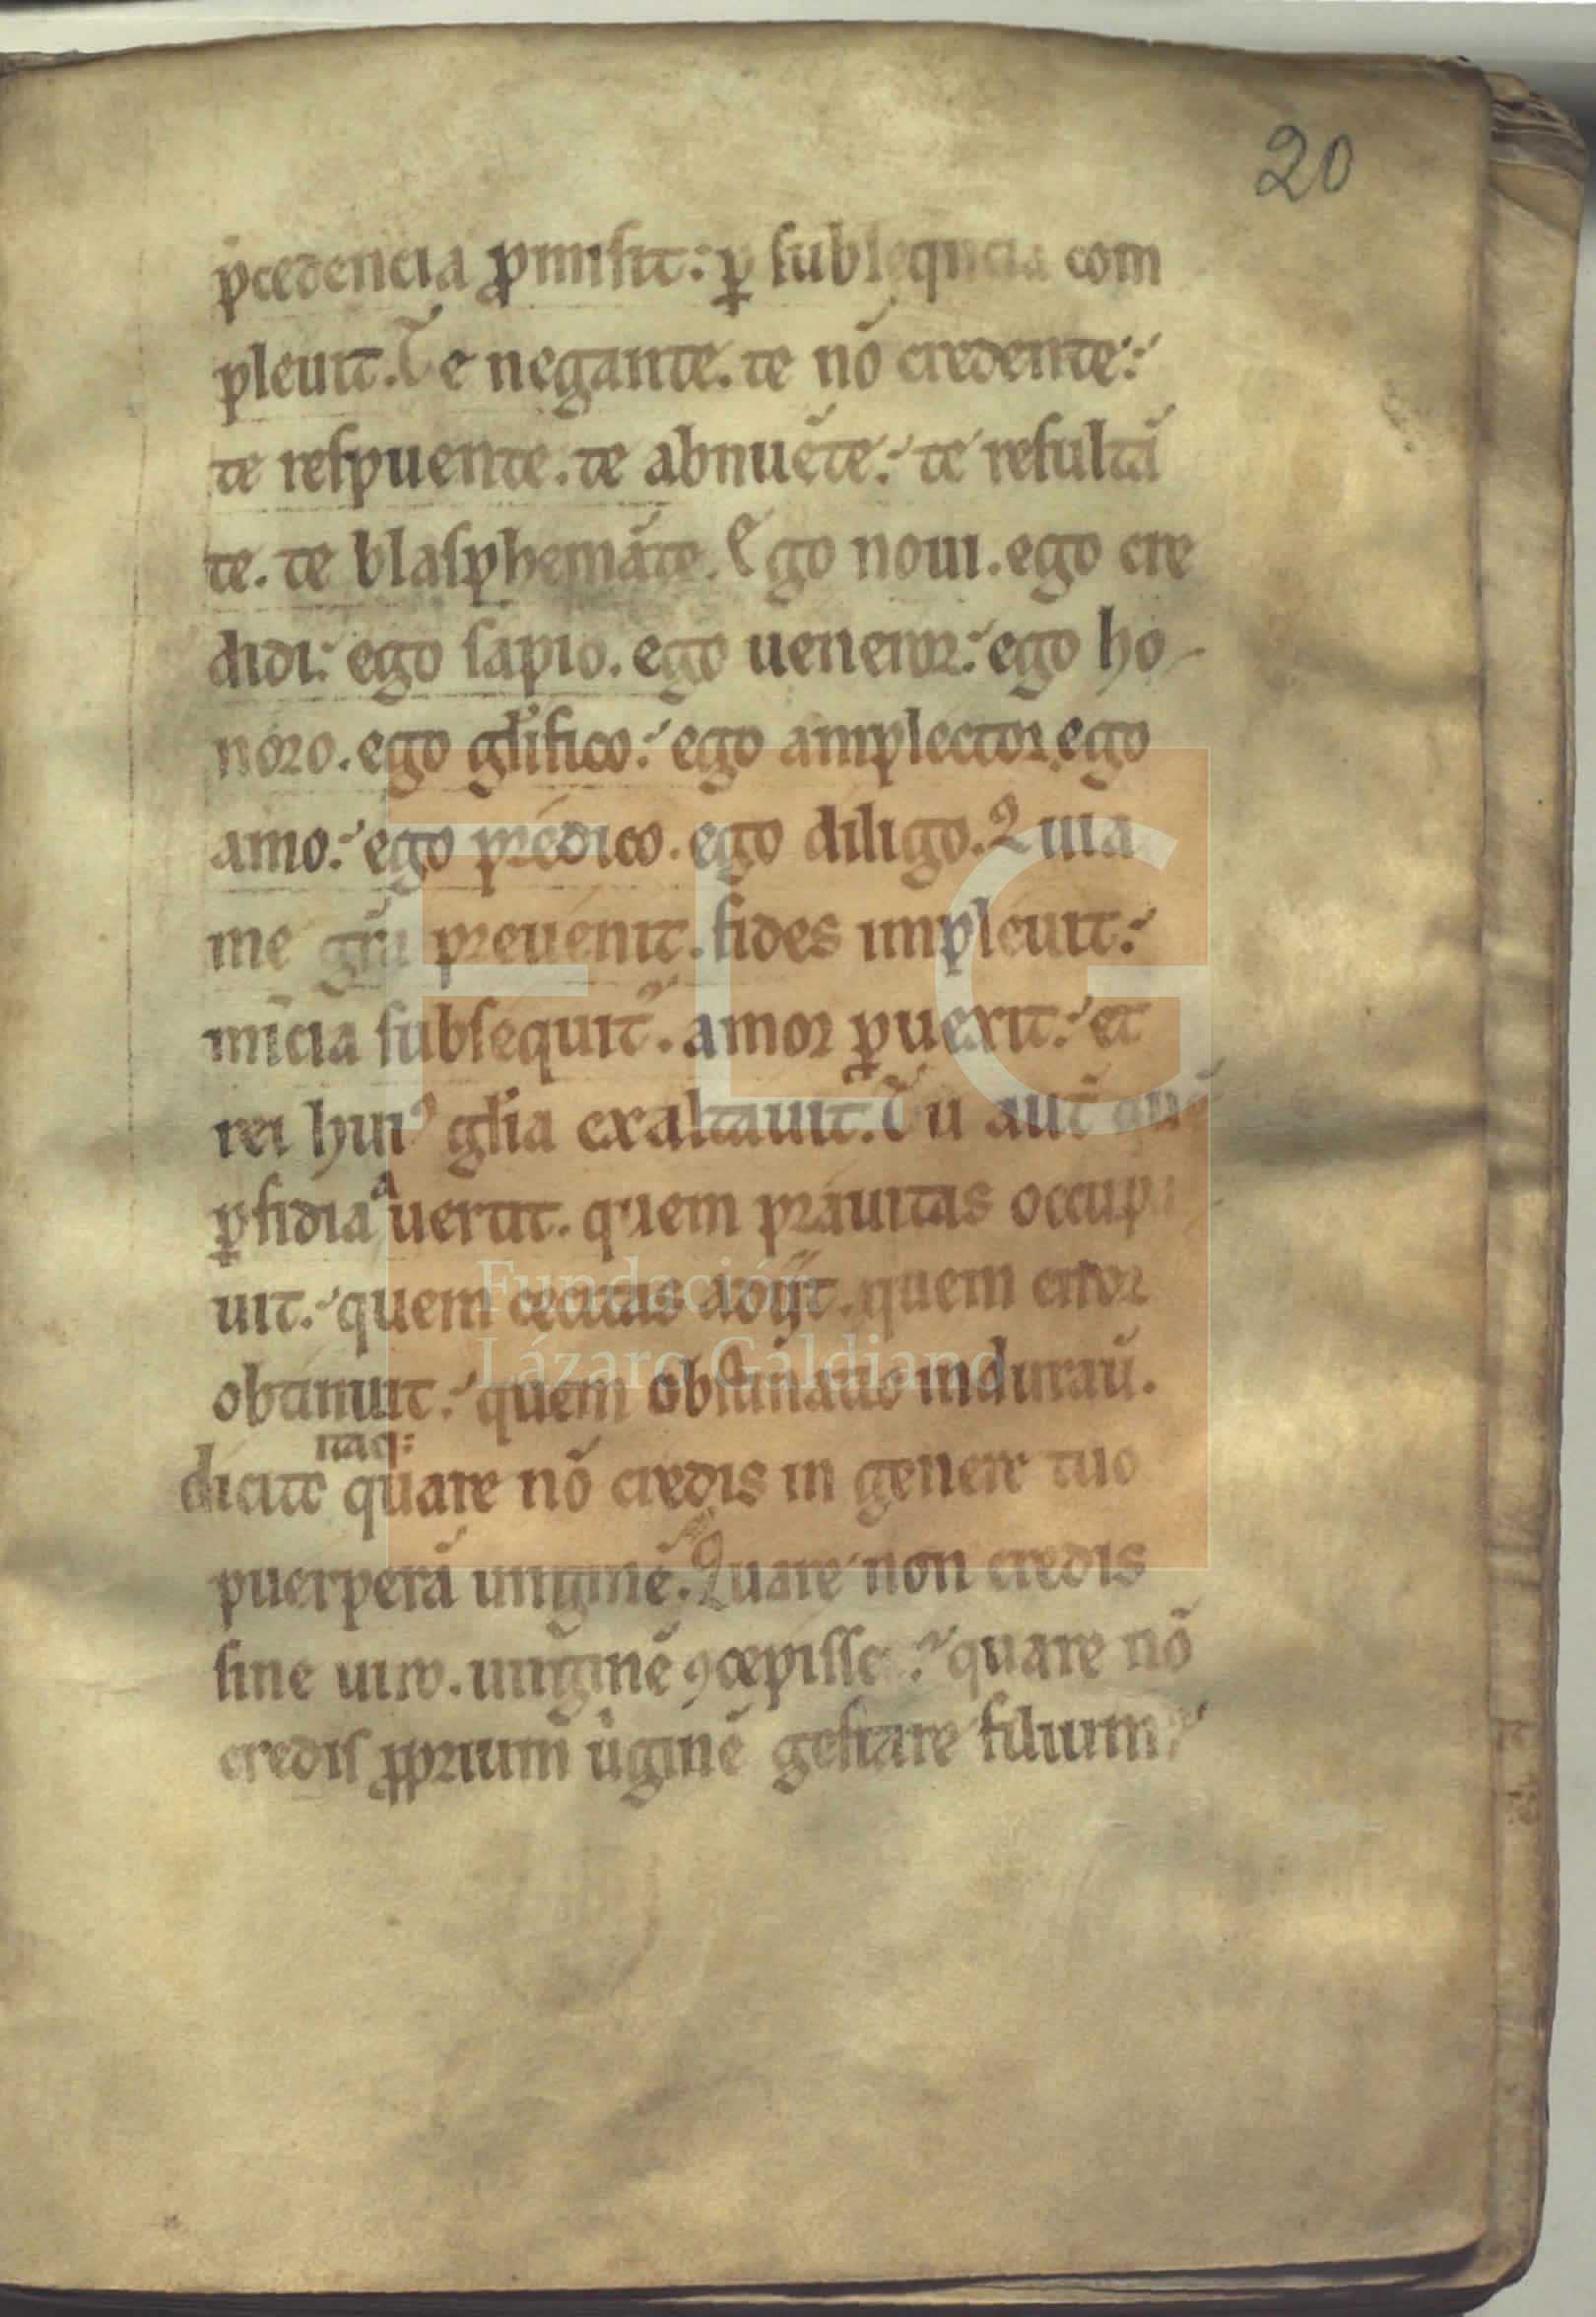 20
p̄cedencia ꝓmisit: ꝑ subsequēcia com
pleuit. Te negante. te nō credente:
te respuente. te abnuēte: te resultā
te. te blasphemāte. Ego noui. ego cre
didi: ego sapio. ego ueneror: ego ho-
noro. ego gl̄ifico: ego amplector. ego
amo: ego predico. ego diligo. Quia
me gr̄a preuenit. fides impleuit:
mīcia subsequit᷑. amor ꝑuexit: et
rei huiꝰ gl̄ia exaltauit. Tu aut̄ quē
ꝑfidia auertit. quem prauitas occupa
uit: quem cecitas adijt. quem error
obtinuit: quem obstinatio indurau̅.
itaq:
dicite quare nō credis in genere tuo
puerperā uirginē. Quare non credis
sine uiro. uirginē ꝯcepisse: quare nō
credis ꝓprium u̇ginē gestare filium?
Fundación
Lázaro Galdiano
FLG